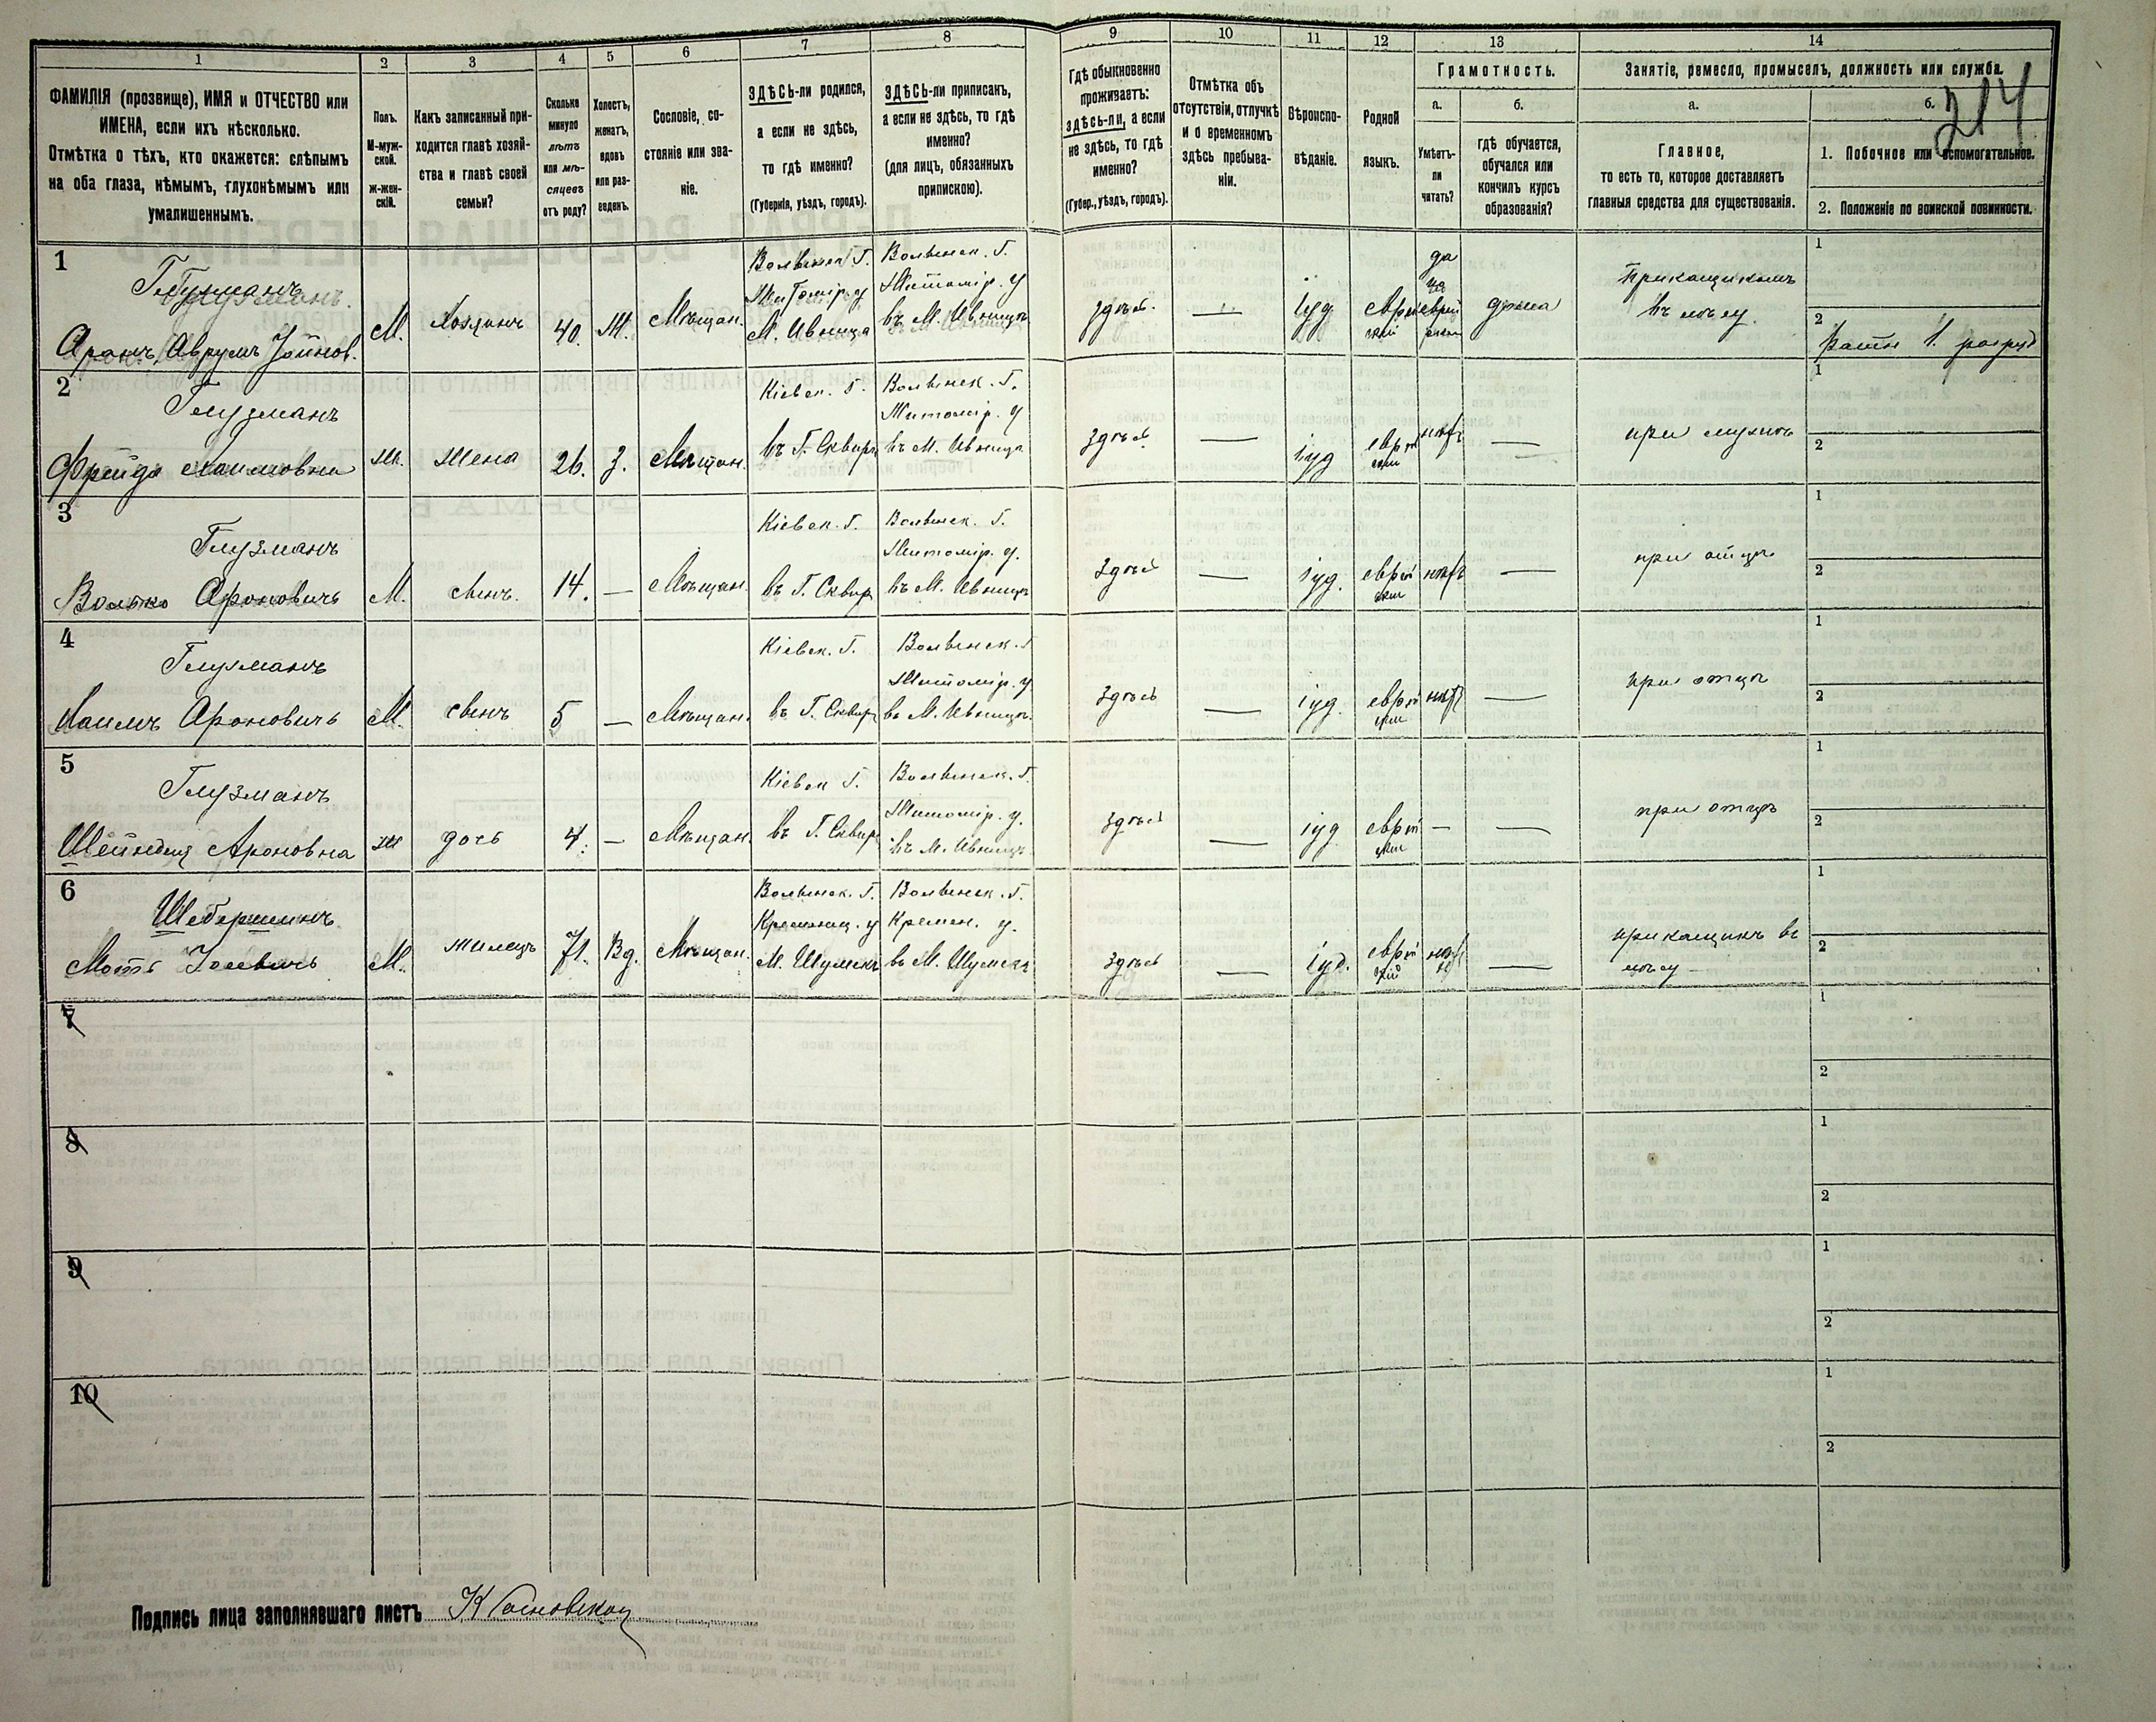 214
1 2 3 4 5 6 7 8 9 10 11 12 13 14
ФАМИЛІЯ (прозвище), ИМЯ и ОТЧЕСТВО или
ИМЕНА, если ихъ нѣсколько.
Отмѣтка о тѣхъ, кто окажется: слѣпымъ
на оба глаза, нѣмымъ, глухонѣмымъ или
умалишеннымъ.
Полъ.
М-муж-
ской.
ж-жен-
скій.
Какъ записанный при-
ходится главѣ хозяй-
ства и главѣ своей
семьи?
Сколько
минуло
лѣтъ
или мѣ-
сяцевъ
отъ роду?
Холостъ,
женатъ,
вдовъ
или раз-
веденъ.
Сословіе, со-
стояніе или зва-
ніе.
ЗДѢСЬ-ли родился,
а если не здѣсь,
то гдѣ именно?
(Губернія, уѣздъ, городъ).
ЗДѢСЬ-ли приписанъ,
а если не здѣсь, то гдѣ
именно?
(для лицъ, обязанныхъ
припискою).
Гдѣ обыкновенно
проживаетъ:
здѣсь-ли, а если
не здѣсь, то гдѣ
именно?
(Губер., уѣздъ, городъ).
Отмѣтка объ
отсутствіи, отлучкѣ
и о временномъ
здѣсь пребыва-
ніи.
Вѣроиспо-
вѣданіе.
Родной
языкъ.
Грамотность.
а.
Умѣетъ-
ли
читать?
б.
гдѣ обучается,
обучался или
кончилъ курсъ
образованія?
Занятіе, ремесло, промыселъ, должность или служба.
а.
Главное,
то есть то, которое доставляетъ
главныя средства для существованія.
б.
1. Побочное или вспомогательное.
2. Положеніе по воинской повинности.
1
Глузманъ
Аронъ, Аврумъ Іойнов.
М.
Хозяинъ
40.
Ж.
Мѣщан.
Волынск. Г.
Житомір. у
М. Ивница
Волынск. Г.
Житомір. у
въ М. Ивницѣ
здѣсь.
—
іуд.
еврей
скій
да
на
еврей
дома
Прикащикомъ
въ лѣсу.
1
2
Ратн. 1. разряд
2
Глузманъ
Фрейда Хаимовна
Ж.
Жена
26.
З.
Мѣщан.
Кіевск. Г.
въ Г. Сквирѣ
Волынск. Г.
Житомір. у
въ М. Ивницѣ
здѣсь
—
іуд
еврей
скій
нѣтъ
—
при мужѣ
1
2
3
Глузманъ
Волько Ароновичъ
М.
сынъ.
14.
—
Мѣщан.
Кіевск. Г.
въ Г. Сквирѣ
Волынск. Г.
Житомір. у.
въ М. Ивницѣ
здѣсь
—
іуд.
еврей
скій
нѣтъ
—
при отцѣ
1
2
4
Глузманъ
Хаимъ Ароновичъ
М.
сынъ
5
—
Мѣщан.
Кіевск. Г.
въ Г. Сквирѣ
Волынск. Г
Житомір. у
въ М. Ивницѣ.
здѣсь
—
іуд.
еврей
скій
нѣтъ
—
при отцѣ
1
2
5
Глузманъ
Шейндля Ароновна
Ж
дочь
4.
—
Мѣщан.
Кіевск Г.
въ Г. Сквирѣ
Волынск. Г.
Житомір. у.
въ М. Ивницѣ
здѣсь
—
іуд
еврей
скій
—
—
при отцѣ
1
2
6
Шеберминъ
Моть
М.
жилецъ
71.
Вд.
Мѣщан.
Волынск. Г.
Кременец. у
М. Шумскъ
Волынск. Г.
Кремен. у.
въ М. Шумскѣ
здѣсь
—
іуд.
еврей
скій
нѣтъ
—
прикащикъ въ
лѣсу
1
2
7
1
2
8
1
2
9
1
2
10
1
2
Подпись лица заполнявшаго листъ